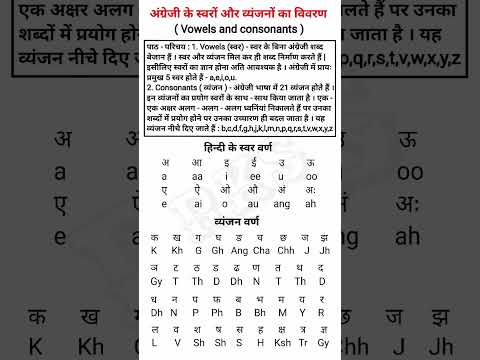 अंग्रेजी के स्वरों और व्यंजनों का विवरण
( Vowels and consonants )
पाठ - परिचय : 1. Vowels (स्वर) - स्वर के बिना अंग्रेजी शब्द
बेजान हैं । स्वर और व्यंजन मिल कर ही शब्द निर्माण करते हैं |
इसीलिए स्वरों का ज्ञान होना अति आवश्यक है । अंग्रेजी में प्रायः
प्रमुख 5 स्वर होते हैं - a,e,i,o,u.
2. Consonants ( व्यंजन ) - अंग्रेजी भाषा में 21 व्यंजन होते हैं ।
इन व्यंजनों का प्रयोग स्वरों के साथ - साथ किया जाता है । एक -
एक अक्षर अलग - अलग - अलग ध्वनियां निकालते हैं पर उनका
शब्दों में प्रयोग होने पर उनका उच्चारण ही बदल जाता है । यह
व्यंजन नीचे दिए जाते हैं : b,c,d,f,g,h,j,k,l,m,n,p,q,r,s,t,v,w,x,y,z
हिन्दी के स्वर वर्ण
अ आ इ ई उ ऊ
a aa i ee u oo
ए ऐ ओ औ अं अः
e ai o au ang ah
व्यंजन वर्ण
क ख ग घ ङ च छ ज झ
K Kh G Gh Ang Cha Chh J Jh
ञ ट ठ ड ढ ण त थ द
Gy T Th D Dh N T Th D
ध न प फ ब भ म य र
Dh N P Ph B Bh M Y R
ल व श ष स ह क्ष त्र ज्ञ
L V Sh Sh S H Ksh Tr Gy